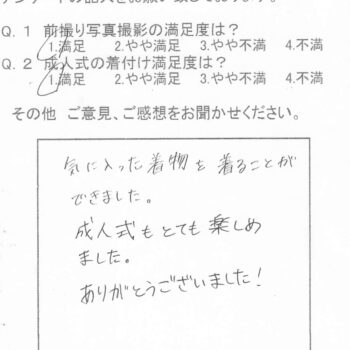 Q. 1 前撮り写真撮影の満足度は?
1.満足 2.やや満足 3.やや不満 4.不満
Q. 2 成人式の着付け満足度は?
1.満足 2.やや満足 3.やや不満 4.不満
その他 ご意見、ご感想をお聞かせください。
気に入った着物を着ることが
できました。
成人式もとても楽しめ
ました。
ありがとうございました!